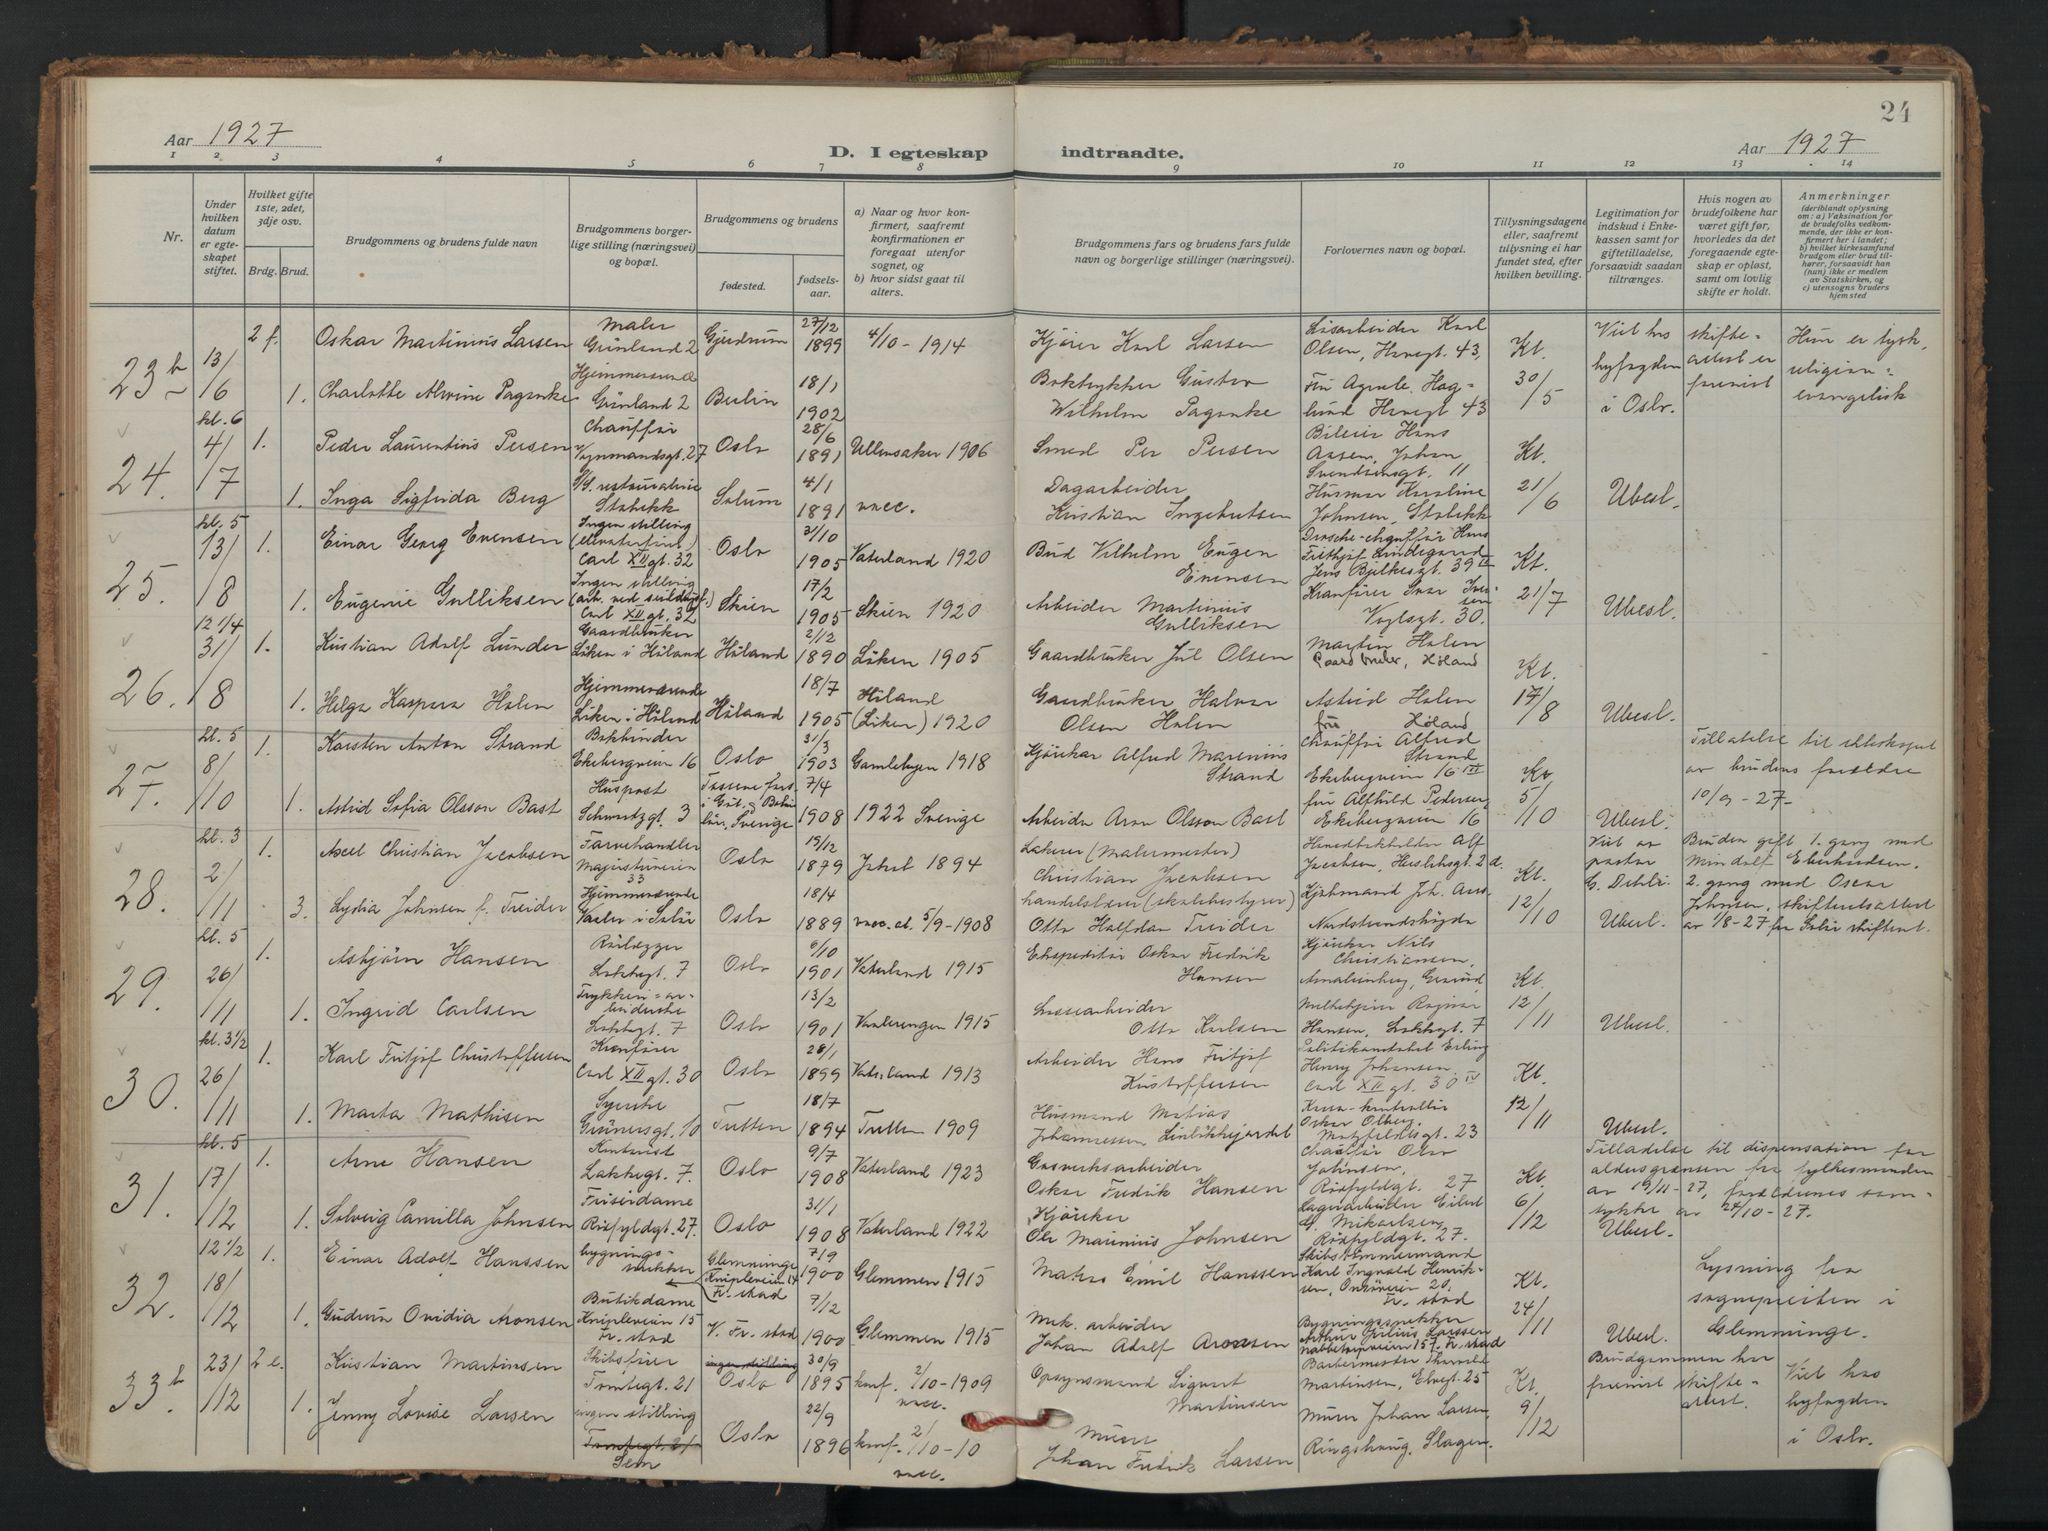 24
Aar 1927
D. I egteskap indtraadte.
Aar 1927
1 2 3 4 5 6 7 8 9 10 11 12 13 14
Nr.
Under hvilken datum er egteskapet stiftet.
Hvilket gifte 1ste, 2det, 3dje osv.
Brdg. Brud.
Brudgommens og brudens fulde navn
Brudgommens borgerlige stilling (næringsvei) og bopæl.
Brudgommens og brudens
fødested.
fødselsaar.
a) Naar og hvor konfirmert, saafremt konfirmationen er foregaat utenfor sognet, og
b) hvor sidst gaat til alters.
Brudgommens fars og brudens fars fulde navn og borgerlige stillinger (næringsvei).
Forlovernes navn og bopæl.
Tillysningsdagene eller, saafremt tillysning ei har fundet sted, efter hvilken bevilling.
Legitimation for indskud i Enkekassen samt for giftetilladelse, forsaavidt saadan tiltrænges.
Hvis nogen av brudefolkene har været gift før, hvorledes da det foregaaende egteskap er opløst, samt om lovlig skifte er holdt.
Anmerkninger (deriblandt oplysning om: a) Vaksination for de brudefolks vedkommende, der ikke er konfirmert her i landet; b) hvilket kirkesamfund brudgom eller brud tilhører, forsaavidt han (hun) ikke er medlem av Statskirken, og c) utensogns bruders hjemsted
23b 13/6 kl. 6
2 f. Oskar Martinius Larsen Maler Grønland 2 Gjerdrum 27/12 1899 4/10 - 1914 Kjører Karl Larsen Løsarbeider Karl Olsen, Havegt. 43, Kt. 30/5 Viet hos byfogden i Oslo. skifteattest er forevist Hun er tysk, religion = evangelisk
1. Charlotte Alwine Pagenke Hjemmeværende Grønland 2 Berlin 18/1 1902 Boktrykker Gustav Wilhelm Pagenke Havegt 43
24. 4/7 kl. 5
1. Peder Laurentius Persen Chauffør 27 Oslo 28/6 1891 Ullensaker 1906 Smed Per Persen Bileier Hans Aasen, Johan Svendsensgt. 11 Kt. 21/6 Ubesl.
1. Inga Sigfrida Berg Stabekk Solum 4/1 1891 vacc. Dagarbeider Kristian Ingebretsen Johnsen, Stabekk
25. 13/8 12 1/4
1. Einar Georg Evensen Ingen stilling Carl XII gt. 32 Oslo 31/10 1905 Vaterland 1920 Bud Vilhelm Eugen Evensen Drosche-chauffør Hans Frithjof Lindegaard Jens Bjelkesgt. 39 Kt. 21/7 Ubesl.
1. Eugenie Gulliksen Ingen stilling Carl XII gt. 32 Skien 17/2 1905 Skien 1920 Arbeider Martinius Gulliksen Kranfører Ivar Iversen Vogtsgt. 30.
26. 31/8 kl. 5
1. Kristian Adolf Lunder Gaardbruker Løken i Høland Høland 2/12 1890 Løken 1905 Gaardbruker Jul Olsen Martin Holen Gaardbruker, Høland Kt. 17/8 Ubesl.
1. Helga Kaspara Holen Hjemmeværende Løken i Høland Høland 18/7 1905 Høland (Løken) 1920 Gaardbruker Halvor Olsen Holen Astrid Holen fru Høland
27. 8/10 kl. 3
1. Karsten Anton Strand Bokbinder Ekebergveien 16 Oslo 31/3 1903 Gamlebyen 1918 Kjørekar Alfred Marenius Strand Chauffør Alfred Strand Ekebergveien 16 III 5/10 Ubesl. Tillatelse til ekteskapet av brudens foreldre 10/9 - 27 -
1. Astrid Sofia Olsson Bast Huspost Schwartzgt. 3 Sverige 7/4 1908 1922 Sverige Arbeider Aron Olsson Bast fru Alfhild Pedersen, Ekebergveien 16
28. 2/11 kl. 5
1. Axel Christian Jacobsen Farvehandler 33 Oslo 15/12 1879 Jakob 1894 Lakerer (Malermester) Christian Jacobsen Alf Jacobsen, Kt. 12/10 Viet av pastor Ubesl. Bruden gift 1. gang med Mindolf Eberhardsen. 2. gang med Oscar Johnsen, skifterets attest av 1/8 - 27 fra Solør skifteret.
3. Lydia Johnsen f. Treider Hjemmeværende Oslo 18/4 1889 vacc. at. 5/9 - 1908 Handelslærer (skolebestyrer) Otto Halfdan Treider Nordstrandshøgda
29. 26/11 kl. 3 1/2
1. Asbjørn Hansen Rørlægger Lakkegt. 7 Oslo 6/10 1901 Vaterland 1915 Ekspeditør Oskar Fredrik Hansen Kjørekar Nils Christiansen, Kt. 12/11 Ubesl.
1. Ingrid Carlsen Trykkeri-arbeiderske Lakkegt. 7 Oslo 13/2 1901 Vaalerengen 1915 Lossearbeider Otto Karlsen Melkekjører Ragnar Hansen, Lakkegt. 7
30. 26/11 kl. 5
1. Karl Fritjof Christoffersen Kranfører Carl XII gt. 30 Oslo 28/1 1899 Vaterland 1913 Arbeider Hans Fritjof Kristoffersen Politikonstabel Erling Henry Johansen Carl XII gt. 30 IV Kt. 12/11 Ubesl.
1. Marta Mathisen Syerske Grünersgt. 10 Tretten 18/7 1894 Tretten 1909 Husmand Matias Johannessen Kasse-kontrollør Oskar Olberg, 23
31. 17/12 12 1/2
1. Arne Hansen Kontorist Lakkegt. 7. Oslo 9/7 1908 Vaterland 1923 Gasverksarbeider Oskar Fredrik Hansen Chauffør Olav Johnsen, Riðfyldgt. 27 Kt. 6/12 Tilladelse til dispensation for aldersgrensen fra fylkesmanden av 19/11 - 27, forældrenes samtykke av 24/10 - 27. Ubesl.
1. Solveig Camilla Johnsen Friserdame 27. Oslo 31/1 1908 Vaterland 1922 Kjørekar Ole Marinius Johnsen Lagerarbeider Eilert G. Mikaelsen, 27.
32. 18/12
1. Einar Adolf Hanssen bygningssnekker Glemminge Knipleveien 14 Fr. stad 7/9 1900 Glemmen 1915 Matros Emil Hanssen Skibstømmermand Karl Ingvald Henriksen, 20. Fr. stad Kt. 24/11 Ubesl. Lysning fra sognepresten i Glemminge.
1. Gudrun Ovidia Aronsen Butikdame Knipleveien 15 Fr. stad V. Fr. stad 7/12 1900 Glemmen 1915 Mek. arbeider Johan Adolf Aronsen Bygningssnekker Arthur Julius Larssen Fr. stad
33b. 23/12
2 e. Kristian Martinsen Skibsfører Tomtegt. 21 ingen stilling Oslo 30/9 1895 konf. 2/10 - 1909 vacc. Opsynsmand Sigvart Martinsen Barbermester Thorvald Martinsen, Elvegt. 25 Kt. 9/12 Brudgommen har forevist skifteattest. Viet hos byfogden i Oslo.
1. Jenny Lovise Larsen ingen stilling Tomtegt. 21 Sem Oslo 22/9 1896 konf. 2/10 - 10 vacc. Murer Johan Fredrik Larsen Murer Johan Larsen, Ringshaug, Slagen.